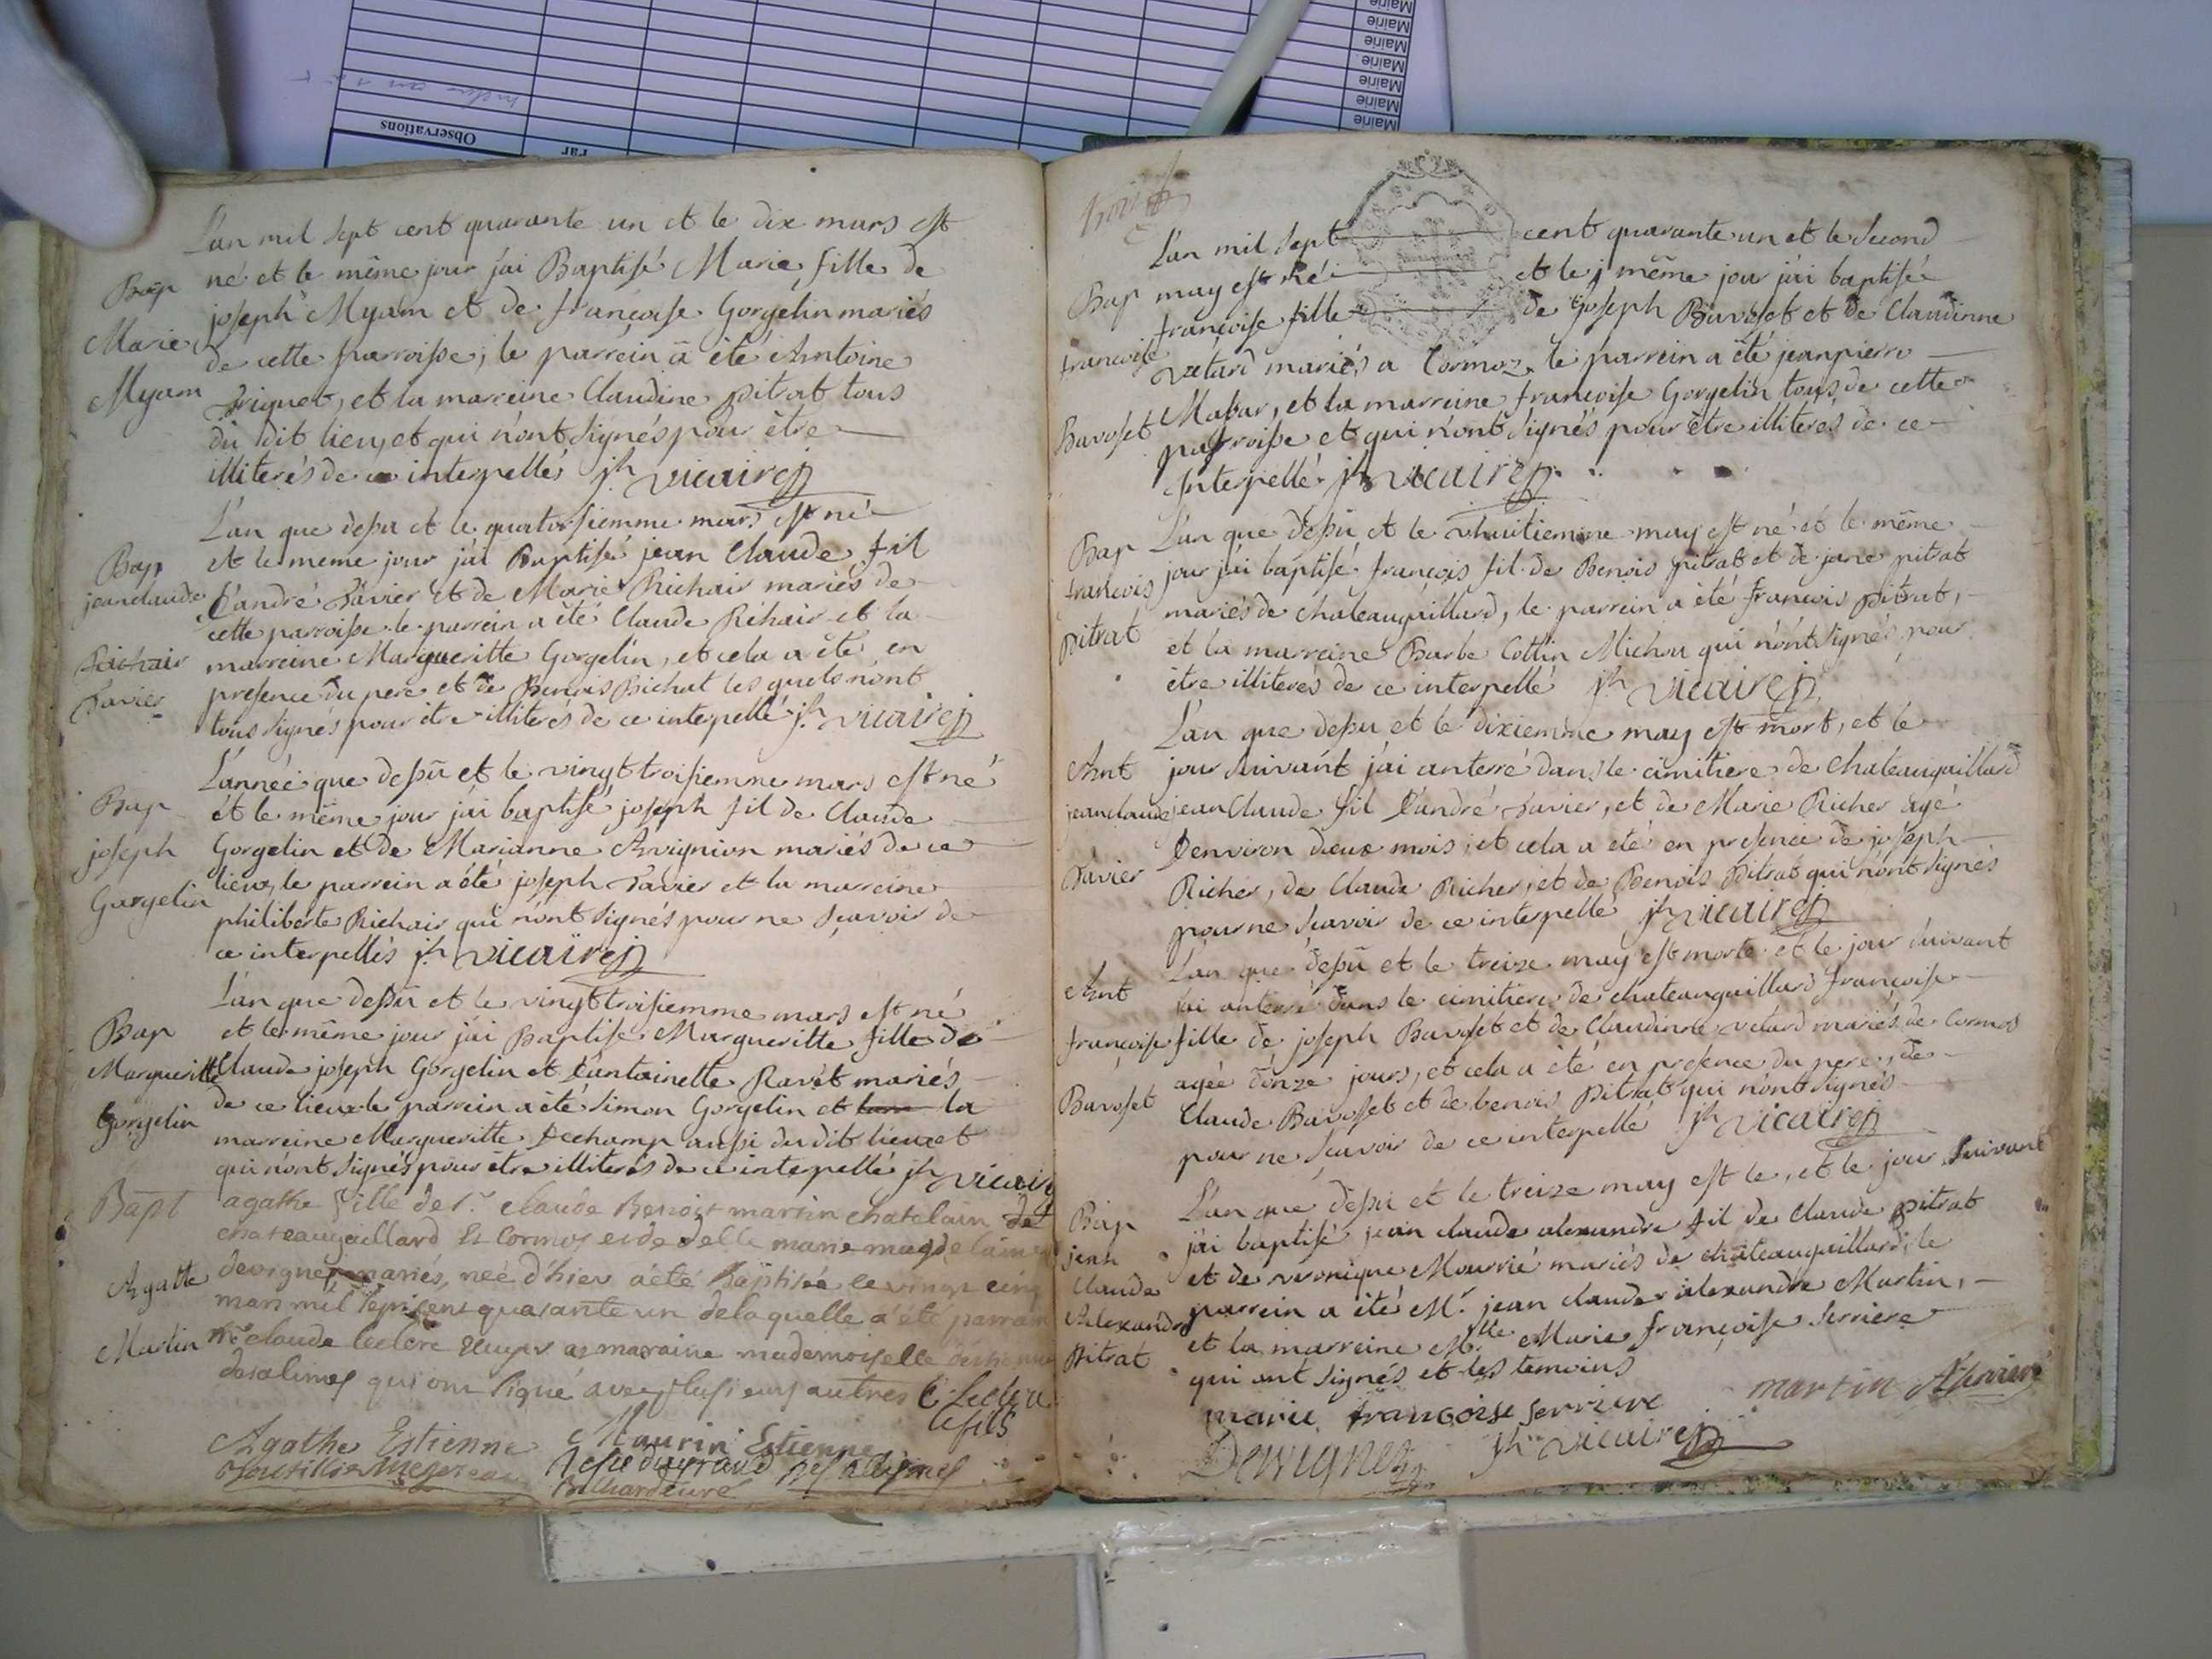 Mairie
Mairie
Mairie
Mairie
Mairie
Mairie
Mairie
Observations
Par
L'an mil sept cent quarante un et le dix mars est
né et le même jour j'ai Baptisé Marie, fille de
joseph Myam et de françoise Gorgelin mariés
de cette parroisse, le parrein a été Antoine
et la marreine Claudine pitrat tous
du dit lieu, et qui n'ont signés pour être
illiterés de ce interpellés jh vicaire
Bap
Marie
Myam
L'an que dessu et le quatorsiemme mars est né
et le meme jour j'ai Baptisé jean Claude fil
d'andré Savier et de Marie Richair mariés de
cette parroisse le parrein a été Claude Rihair et la
marreine Margueritte Gorgelin, et cela a été en
presence du pere et de Benois Bichat les quels n'ont
tous signés pour être illiterés de ce interpellé jh vicaire
Bap
jeanclaude
Richair
Savier
L'année que dessu et le vingt troisiemme mars est né
et le même jour j'ai baptisé joseph fil de Claude
Gorgelin et de Marianne Avignion mariés de ce
lieux, le parrein a été joseph Savier et la marreine
philiberte Richair qui n'ont signés pour ne sçavoir de
ce interpellés jh vicaire
Bap
joseph
Gorgelin
L'an que dessu et le vingt troisiemme mars est né
et le même jour j'ai Baptisé Margueritte fille de
Claude joseph Gorgelin et d'antoinette Ravet mariés
de ce lieux le parrein a été simon Gorgelin et la
marreine Margueritte Dechamp aussi du dit lieux et
qui n'ont signés pour être illiterés de ce interpellé jh vicaire
Bap
Margueritte
Gorgelin
agathe fille de sr. claude Benoist martin chatelain de
chateaugaillard et Cormos et de delle marie magdelaine
devignez mariés, neé d'hier a été baptisée le vingt cinq
mars mil sept cent quarante un de laquelle a été parrain
mre claude leclerc et maraine mademoiselle
desalimes qui ont signé avec plusieurs autres C Leclerc
le fils
Bapt
Agatte
Martin
Agathe Estienne Maurin Estienne
L'an mil sept cent quarante un et le second
may est né et le même jour j'ai baptisée
françoise fille de joseph Bavoset et de Claudinne
vetard mariés a Cormoz, le parrein a été jeanpierre
Mabar, et la marreine françoise Gorgelin tous de cette
parroisse et qui n'ont signés pour être illiterés de ce
Interpellé jh vicaire
Bap
francoise
Bavoset
L'an que dessu et le vhuitiemme may est né et le même
jour j'ai baptisé françois fil de Benois pitrat et de jane pitrat
mariés de chateaugaillard, le parrein a été françois pitrat,
et la marreine Barbe Cottin Michon qui n'ont signés pour
être illiterés de ce interpellé jh vicaire
Bap
francois
pitrat
L'an que dessu et le dixiemme may est mort, et le
jour suivant j'ai anterré dans le cimitiere de chateaugaillard
jeanClaude fil d'andré Savier, et de Marie Richer agé
d'environ deux mois, et cela a été en presence de joseph
Richer, de Claude Richer, et de Benois pitrat qui n'ont signés
pour ne sçavoir de ce interpellé jh vicaire
Ant
jeanclaude
Savier
L'an que dessu et le treize may est morte et le jour suivant
j'ai anterré dans le cimitiere de chateaugaillard françoise
fille de joseph Bavoset et de Claudinne vetard mariés de Cormos
agée d'onze jours, et cela a été en presence du pere, de
Claude Bavosset et de benois pitrat qui n'ont signés
pour ne sçavoir de ce interpellé jh vicaire
Ant
françoise
Bavoset
L'an que dessu et le treize may est le, et le jour suivant
j'ai baptisé jean claude alexandre fil de Claude pitrat
et de veronique Mourrié mariés de chateaugaillard, le
parrein a été Mr. jean claude alexandre Martin,
et la marreine Mlle Marie françoise serriere
qui ont signés et les temoins
Bap
jean
Claude
Alexandre
pitrat
marie francoise serriere martin
Devignez jh vicaire